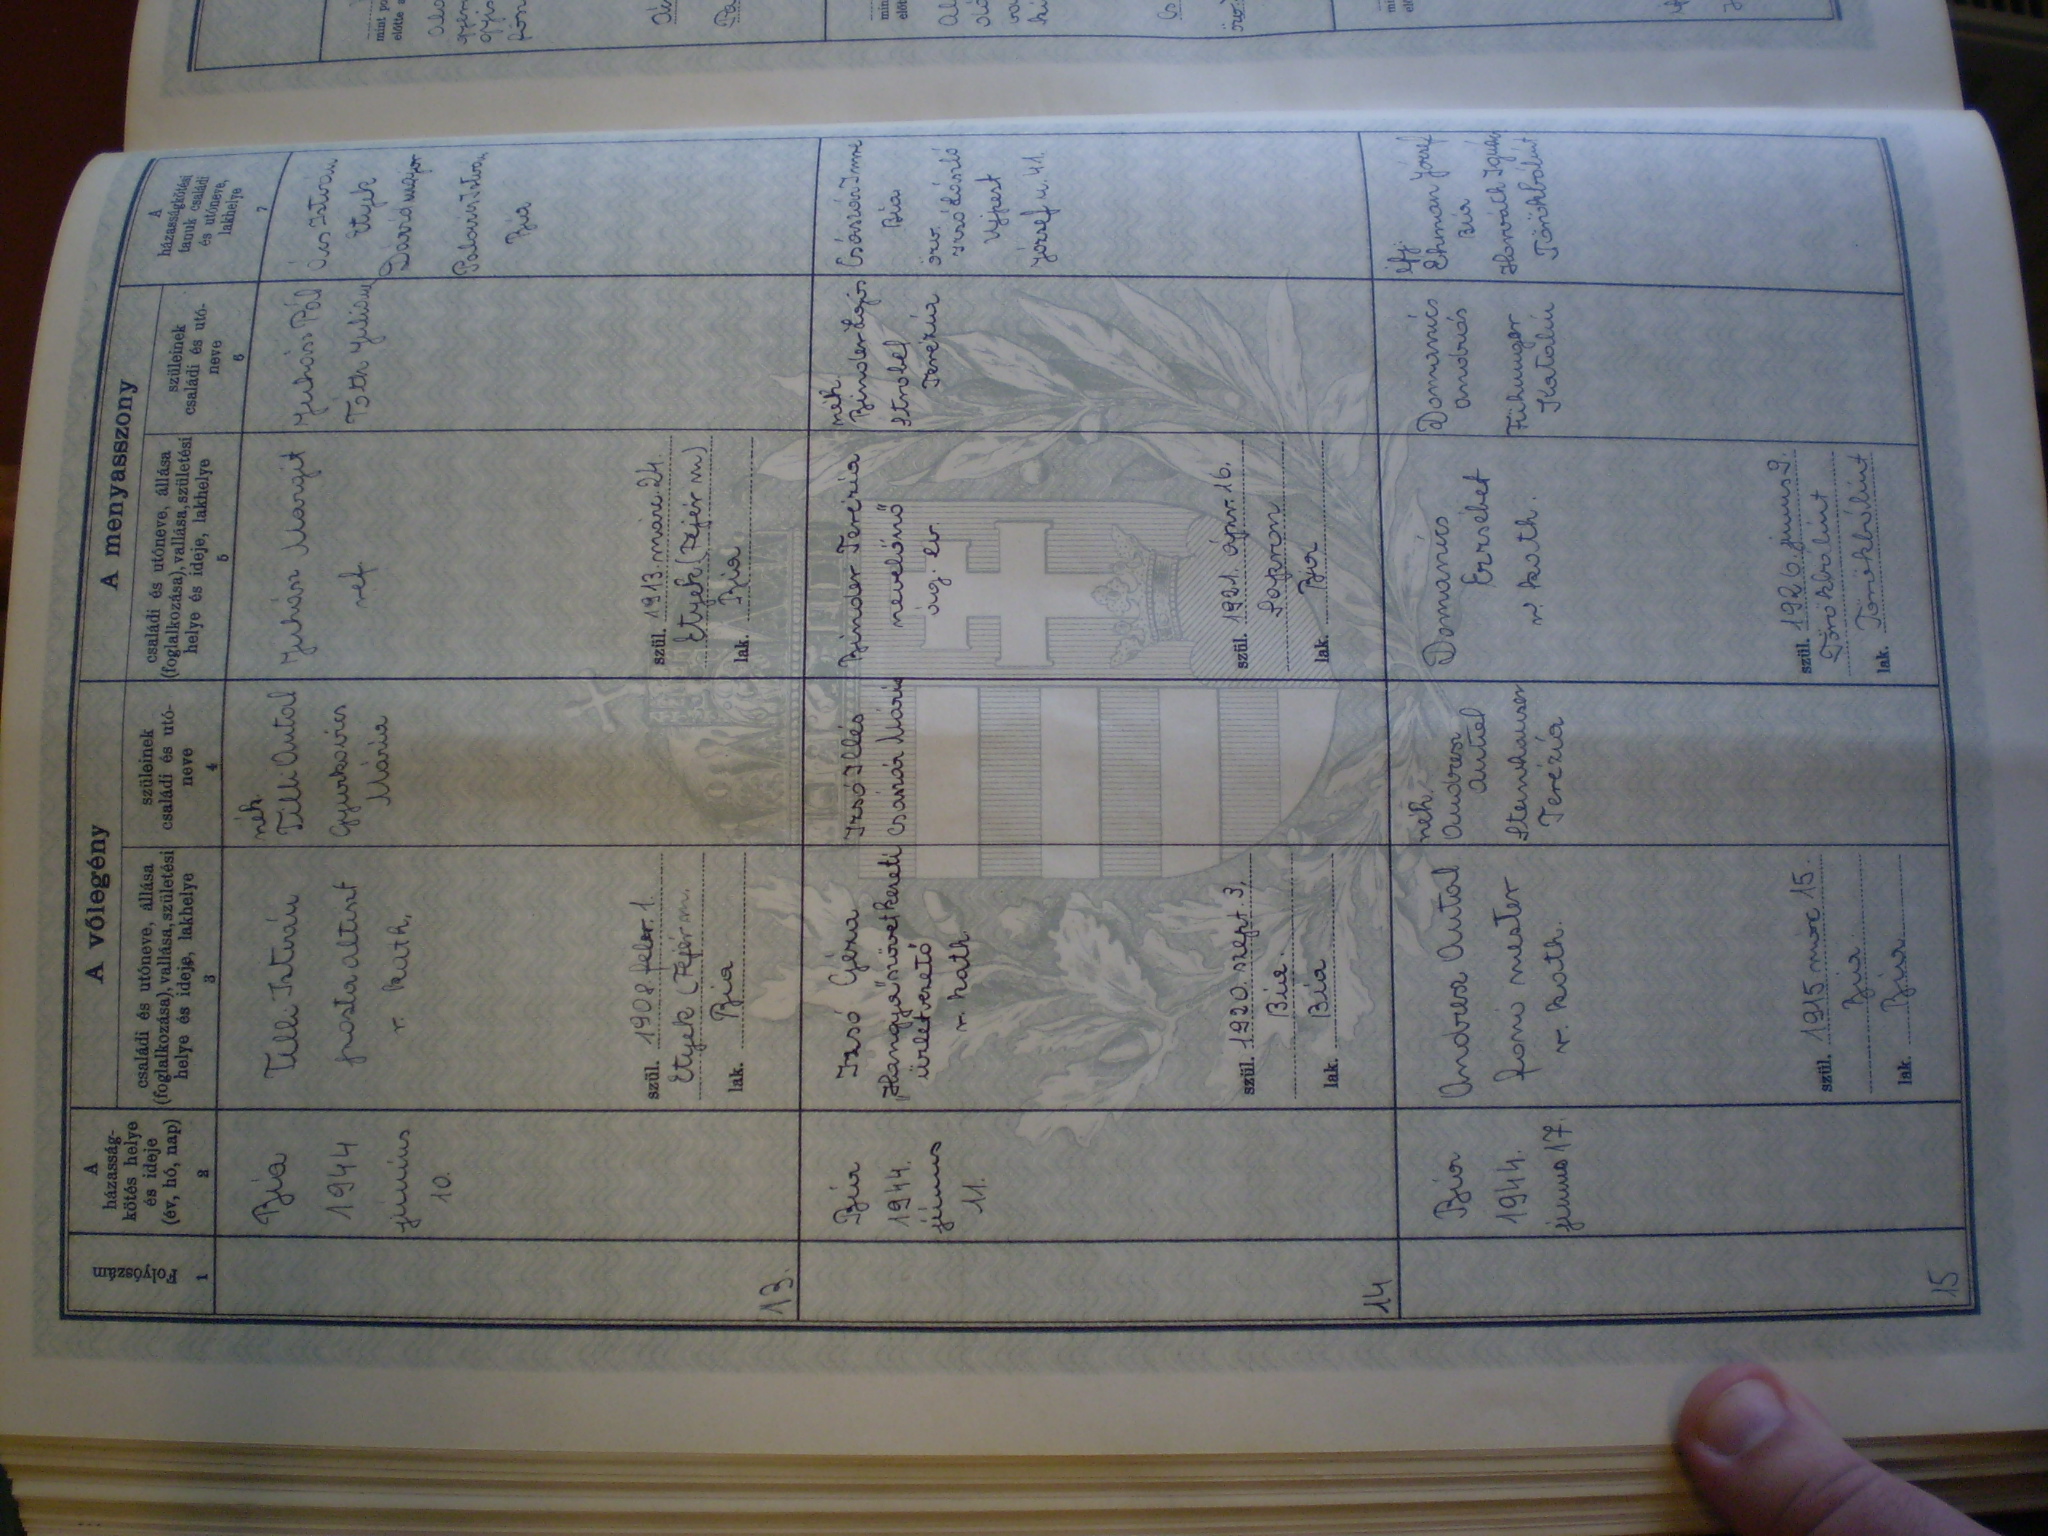 A vőlegény
A menyasszony
Folyószám
1
A
házasság-
kötés helye
és ideje
(év, hó, nap)
2
családi és utóneve, állása
(foglalkozása), vallása, születési
helye és ideje, lakhelye
3
szüleinek
családi és utó-
neve
4
családi és utóneve, állása
(foglalkozása), vallása, születési
helye és ideje, lakhelye
5
szüleinek
családi és utó-
neve
6
A
házasságkötési
tanuk családi
és utóneve,
lakhelye
7
13.
Bia
1944
június
10.
Tilli István
posta altiszt
r. kath.
szül. 1908. febr. 1.
Etyek (Fejér m.
lak. Bia
néh.
Tilli Antal
Gyurkovics
Mária
Juhász Margit
ref.
szül. 1913. márc. 24.
Etyek (Fejér m)
lak. Bia
Juhász Pál
Tóth Juliánna
Ács István
Etyek
István
Bia
14
Bia
1944.
június
11.
Izsó Géza
"Hangya" szövetkezeti
üzletvezető
r. kath.
szül. 1920. szept. 3.
Bia.
lak. Bia
Izsó Illés
Császár Mária
Binder Terézia
nevelőnő
ág. ev.
szül. 1921. ápr. 16.
Sopron
lak. Bia
néh.
Binder Lajos
Strobel
Terézia
Csószó Imre
Bia
özv.
Izsó László
Ujpest
József u. 41.
15
Bia
1944.
június 17.
Andresz Antal
fonó mester
r. kath.
szül. 1915 márc 15.
Bia
lak. Bia
néh.
Andresz
Antal
Steinhauser
Terézia
Domanics
Erzsébet
r. kath.
szül. 1926. június 9.
Törökbálint
lak. Törökbálint
Domanics
András
Katalin
ifj.
Ehmann József
Bia
Horváth Ignác
Törökbálint